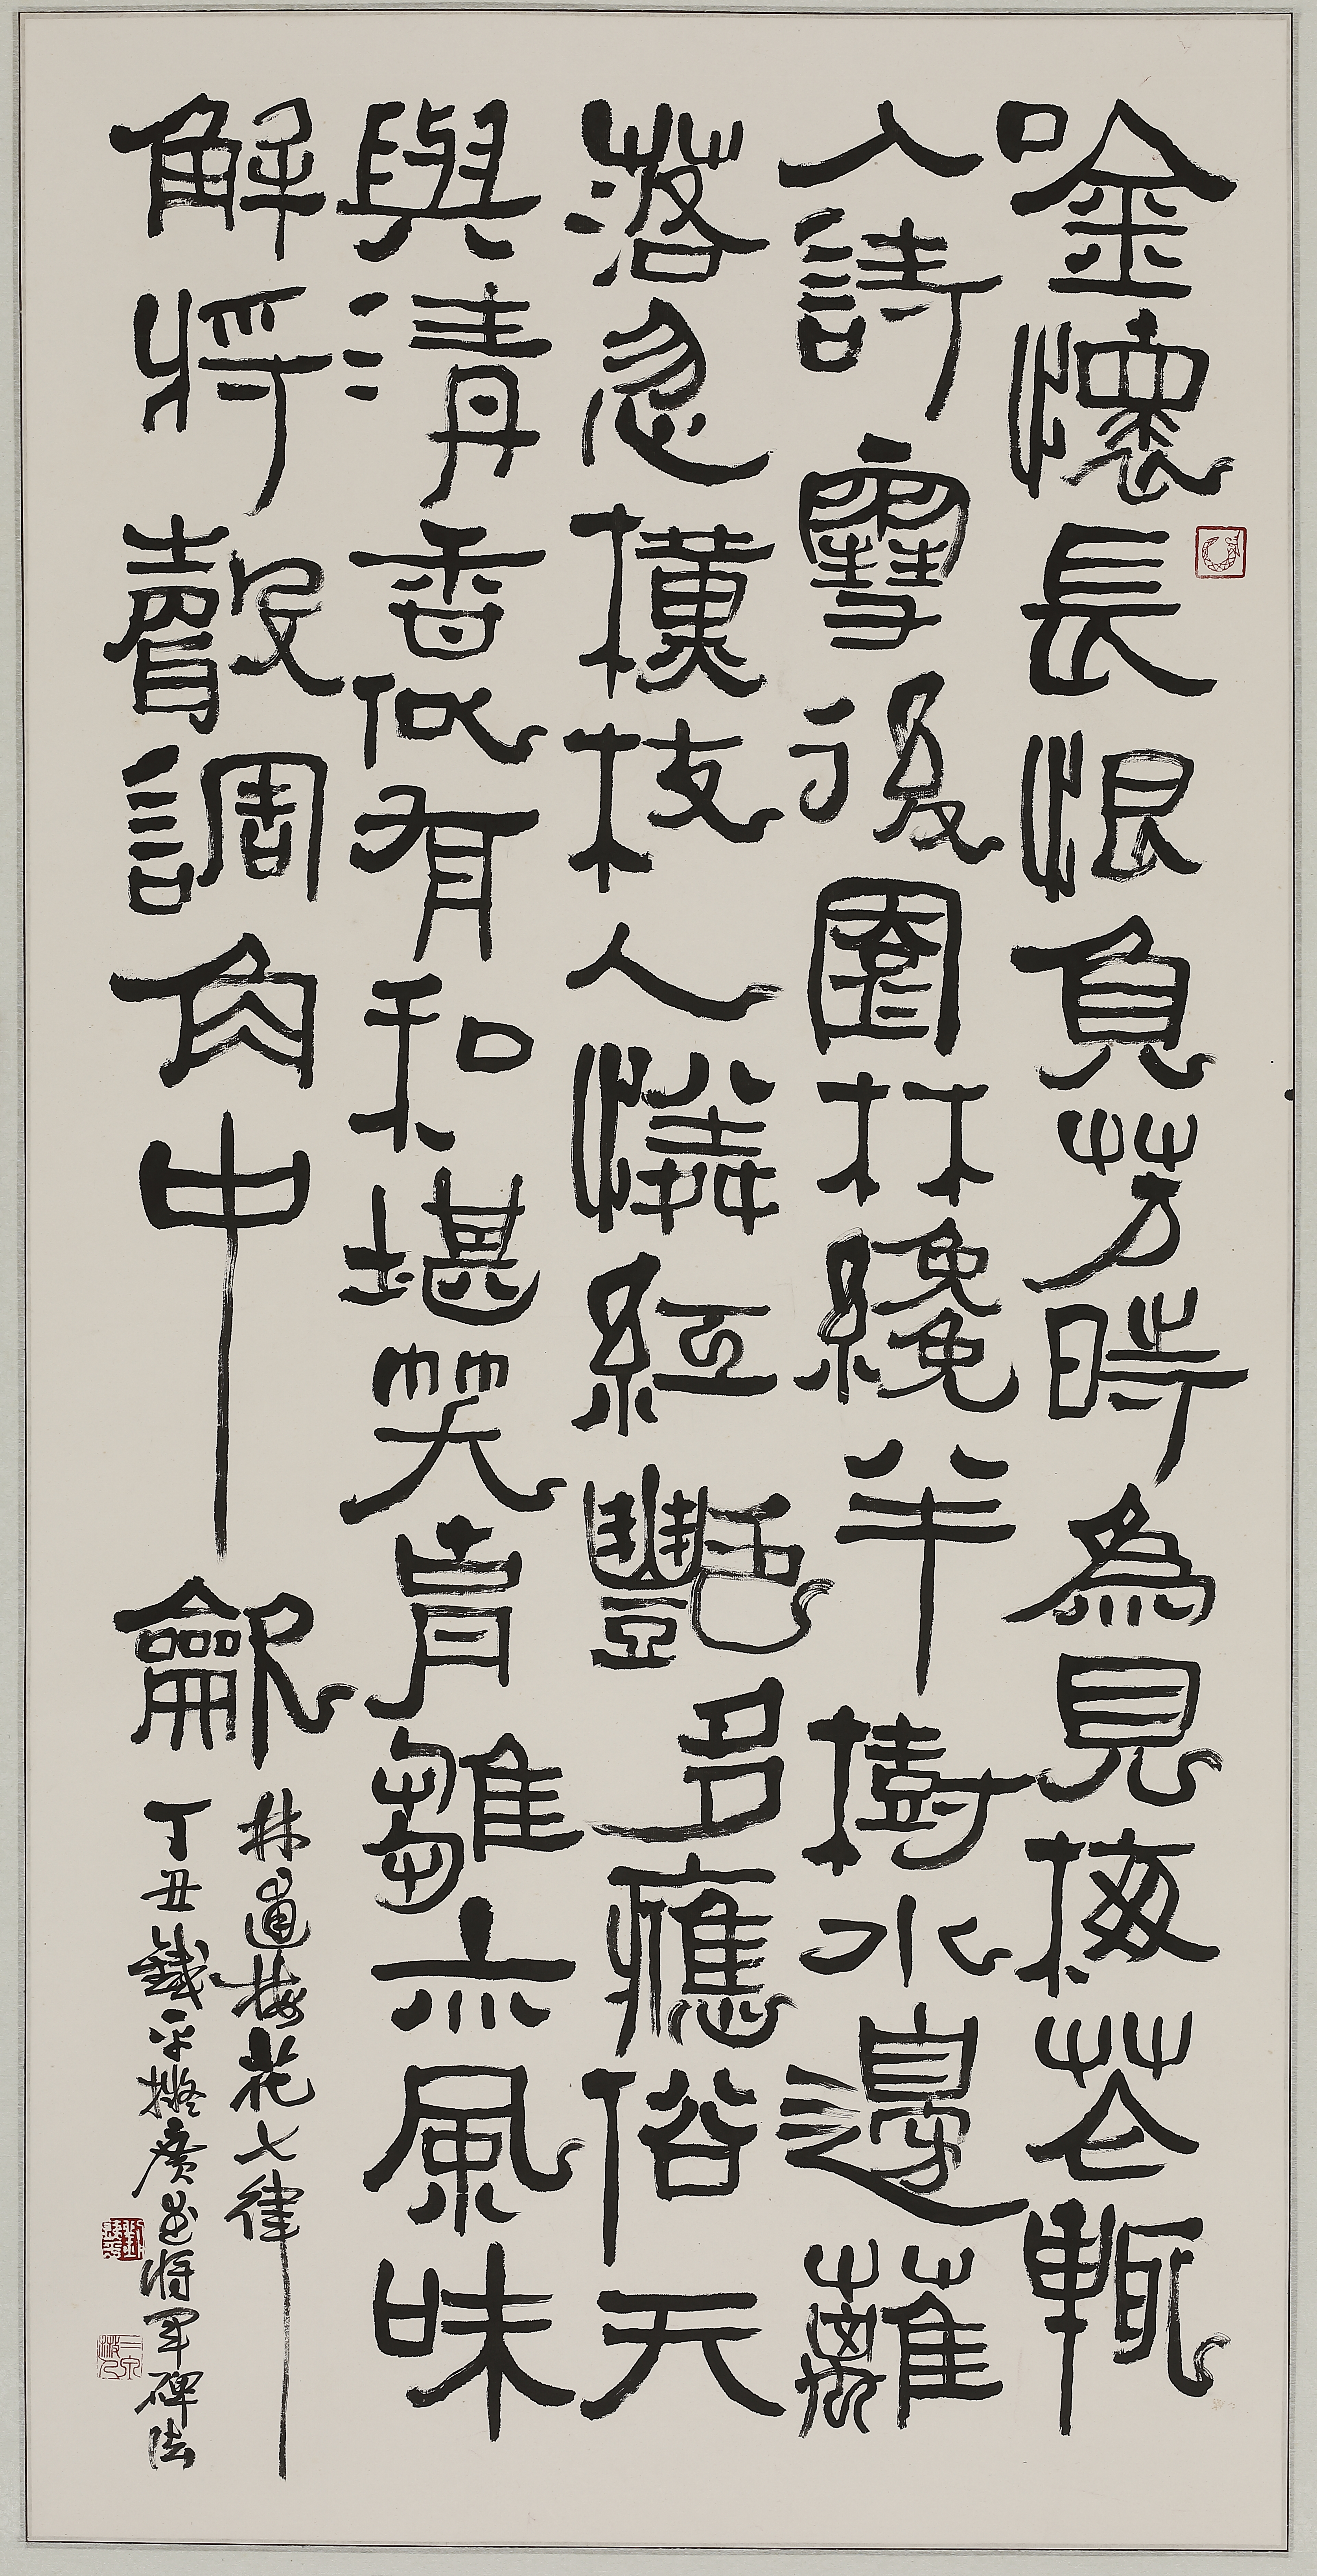 唫懷長恨負芳時為見梅花輒
入詩雪後園林纔半樹水邊蘺
落忽橫枝人憐紅豔多應俗天
與清香似有私堪笑胡雛亦風味
解將聲調角中龡
林逋梅花七律
丁丑鐵平擬廣武將軍碑法